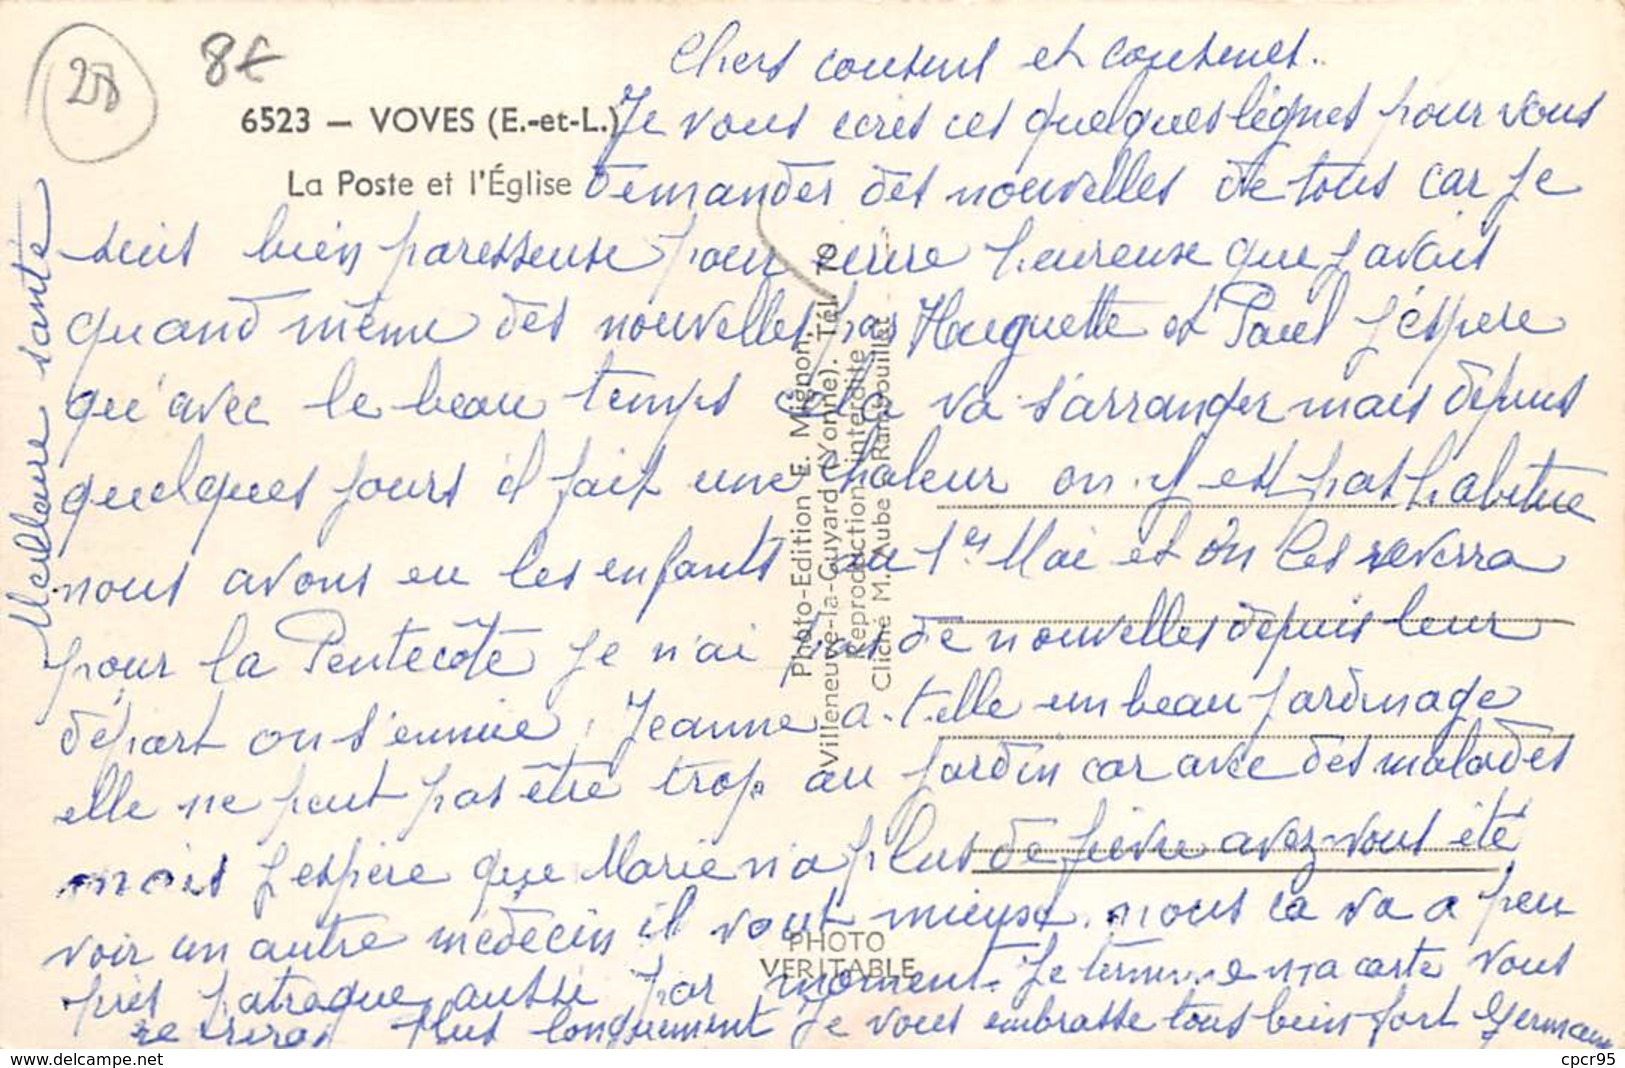 28
8€
6523 — VOVES (E.-et-L.)
La Poste et l'Église
Chers cousins et cousines.
Je vous écris ces quelques lignes pour vous
demander des nouvelles de tous car je
suis bien paresseuse pour écrire heureuse que j'avais
quand même des nouvelles par Huguette et Paul j'espère
qu'avec le beau temps cela va s'arranger mais depuis
quelques jours il fait une chaleur on y est pas habitue
nous avons eu les enfants au 1er Mai et on les reverra
pour la Pentecôte je n'ai pas de nouvelles depuis leur
départ on s'ennuie, Jeanne a-t-elle un beau jardinage
elle ne peut pas être trop au jardin car avec des malades
mais j'espère que Marie n'a plus de fièvre avez-vous été
voir un autre médecin il vaut mieux. nous ca va a peu
près patraque aussi par moment. Je termine ma carte vous
ecrirai plus longuement Je vous embrasse tous bien fort Germaine
Meilleure santé
Photo-Edition E. Mignon,
Villeneuve-la-Guyard (Yonne). Tél. 70
Reproduction interdite
Cliché M. Aube Rambouillet
PHOTO
VERITABLE
re-archive-delcampe.net
cpcr95